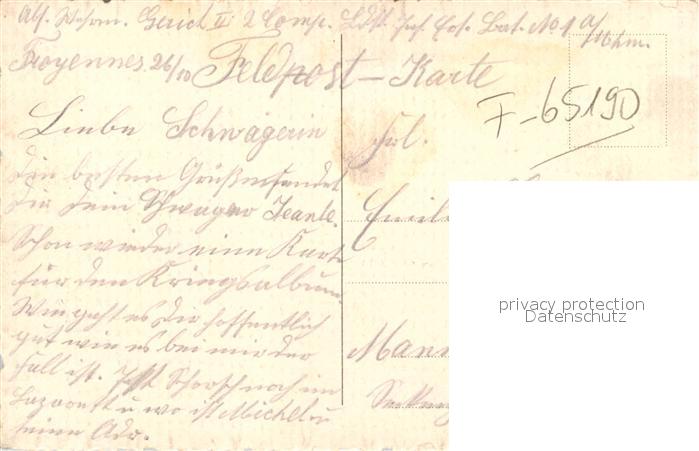 Abs. Wehrm. Gerich II 2 Comp. Ldst. Inf. Ers. Bat. No 1 a/
Mhm.
Froyennes, 26/10 Feldpost-Karte
F-65190
Liebe Schwägerin
Die besten Grüße sendet
Dir Dein Schwager Jeanle.
Schon wieder eine Karte
für den Kriegsalbum.
Wie geht es Dir hoffentlich
gut wie es bei mir der
Fall ist. Ist Schorsch noch im
Lazarett u wo ist Michel u
seine Adr.
Frl.
Emili
Mann
privacy protection
Datenschutz